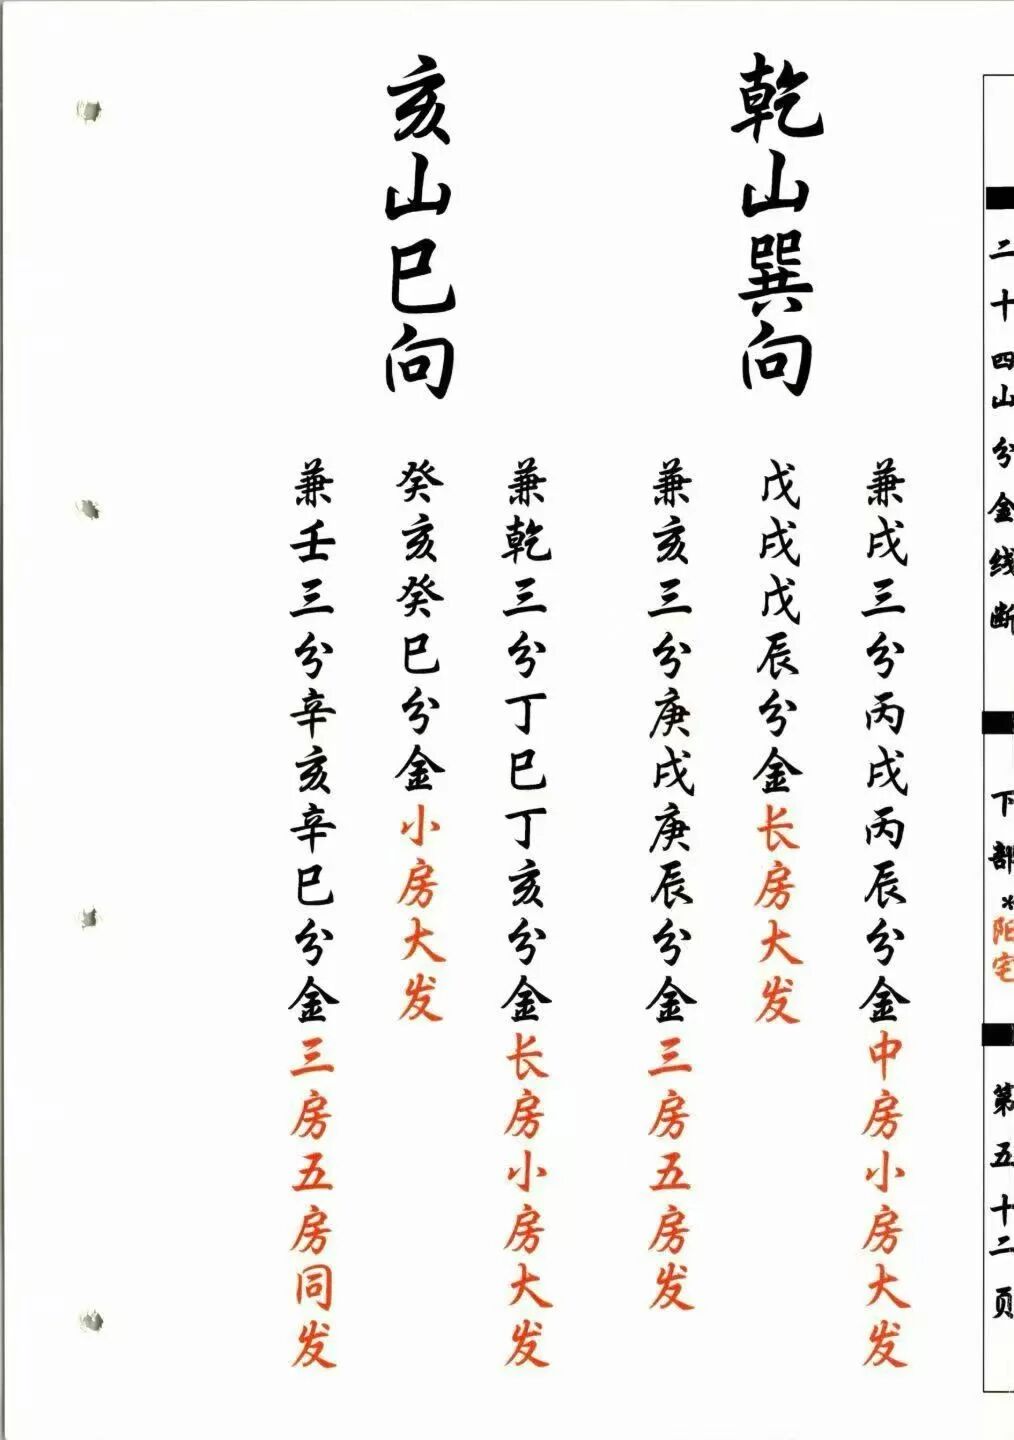 二十四山分金线断
下部*阳宅
第五十二页
乾山巽向
兼戌三分丙戌丙辰分金中房小房大发
戊戌戊辰分金长房大发
兼亥三分庚戌庚辰分金三房五房发
亥山巳向
兼乾三分丁巳丁亥分金长房小房大发
癸亥癸巳分金小房大发
兼壬三分辛亥辛巳分金三房五房同发